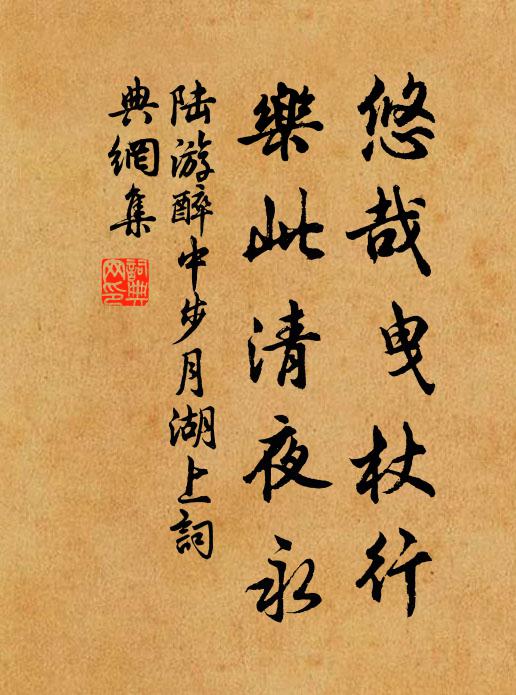 悠哉曳杖行
樂此清夜永
陸游醉中步月湖上詞
典網集
詞典網印